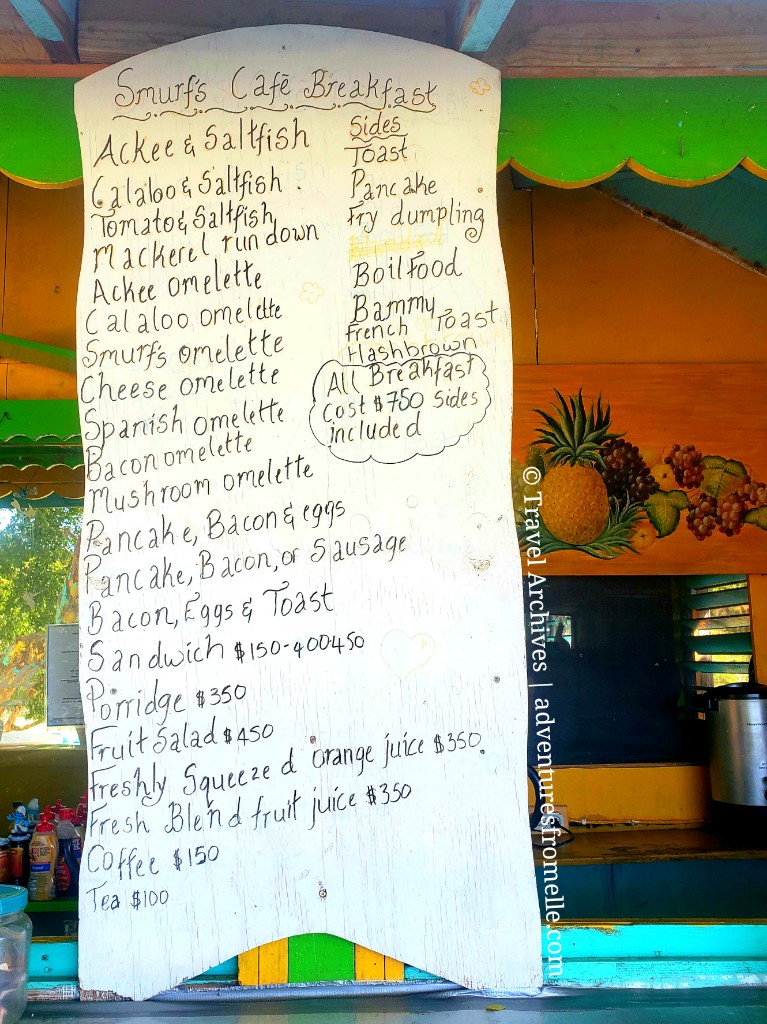 Smurf's Café Breakfast
Ackee & Saltfish
Calaloo & Saltfish.
Tomato & Saltfish
Mackerel run down
Ackee omelette
Calaloo omelette
Smurf's omelette
Cheese omelette
Spanish omelette
Bacon omelette
Mushroom omelette
Pancake, Bacon & eggs
Pancake, Bacon, or Sausage
Bacon, Eggs & Toast
Sandwich $150-400450
Porridge $350
Fruit Salad $450
Freshly Squeezed orange juice $350.
Fresh Blend fruit juice $350
Coffee $150
Tea $100
Sides
Toast
Pancake
Fry dumpling
Boil Food
Bammy
French Toast
Hashbrown
All Breakfast
Cost $750 Sides
included
© Travel Archives | adventuresfromelle.com